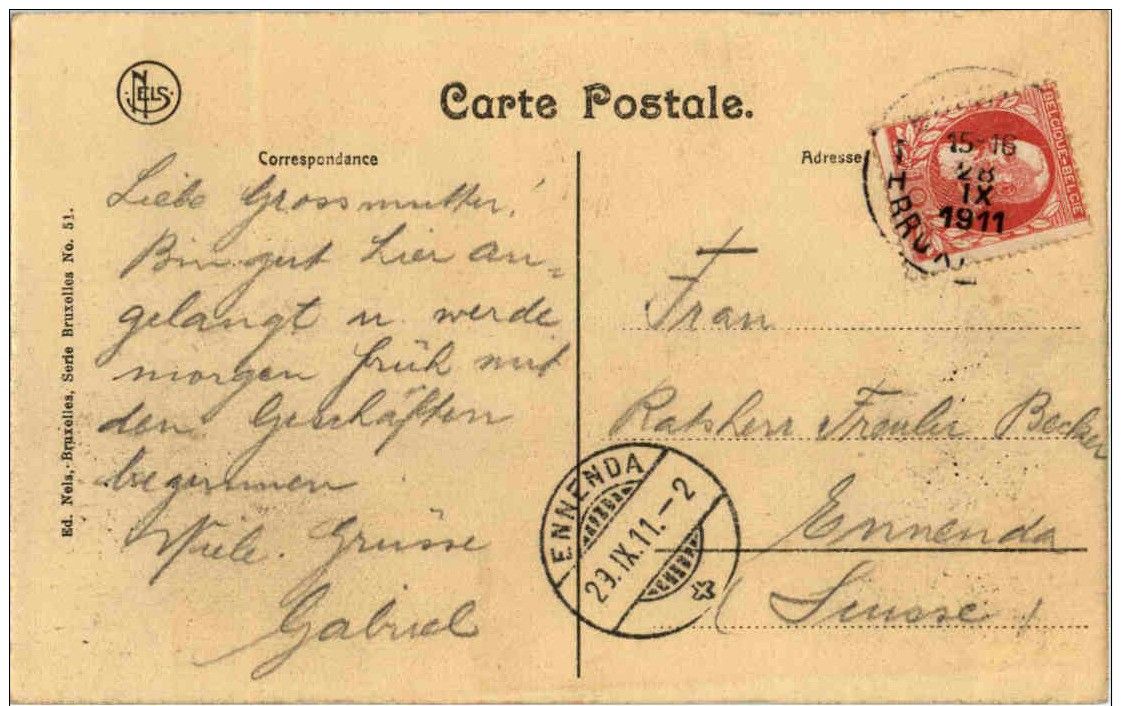 NELS
Carte Postale.
Correspondance
Adresse
Liebe Grossmutter!
Bin gut hier an=
gelangt u. werde
morgen früh mit
den Geschäften
beginnen
Viele Grüsse
Gabriel
Ed. Nels, Bruxelles, Serie Bruxelles No. 51.
BELGIQUE-BELGIË
15-16
28
IX
1911
Frau
Ratsherr Becker
Ennenda
(Suisse)
ENNENDA
29.IX.11.-2